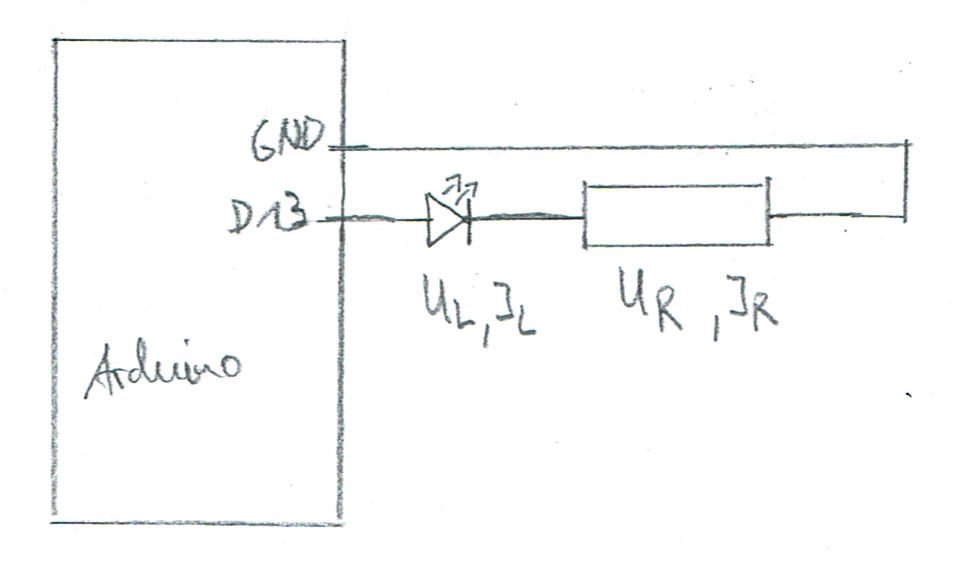 GND
D13
U_L, I_L
U_R, I_R
Arduino